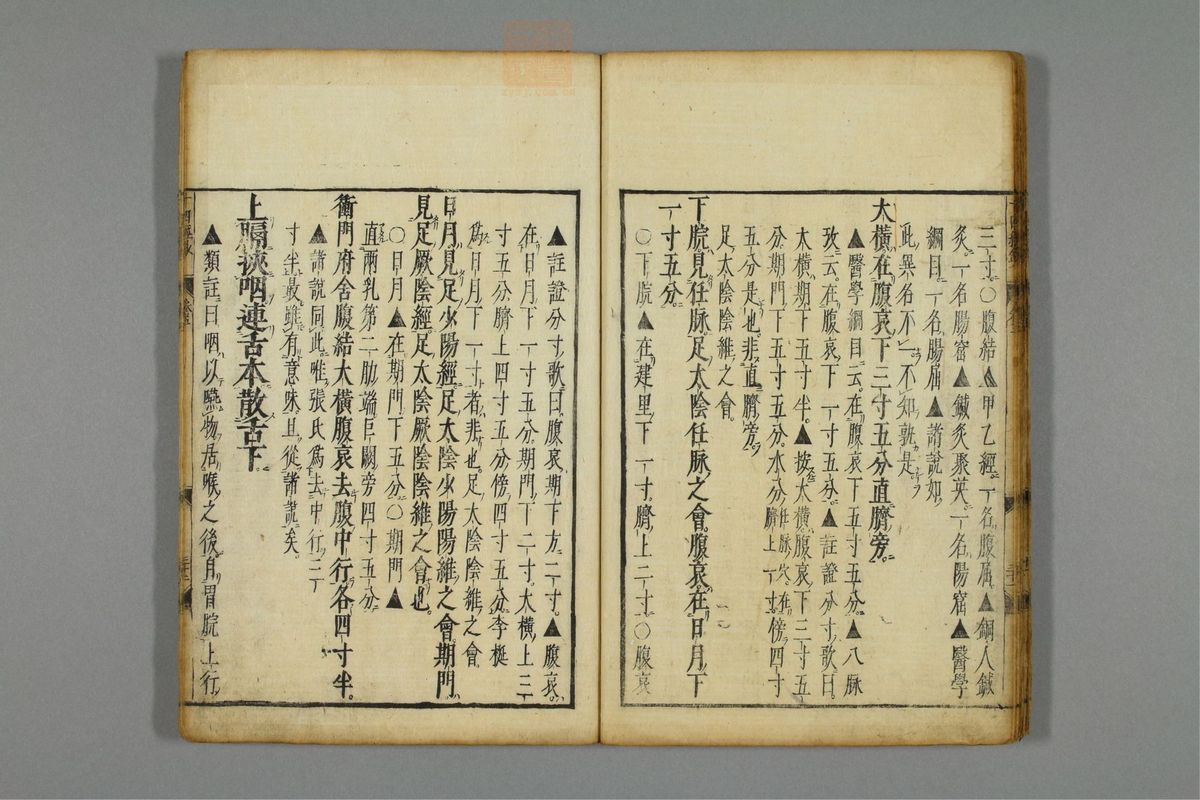 三寸○腹結▲甲乙經一名腹屈▲銅人鍼
灸一名腸窟▲鍼灸聚英一名陽窟▲醫學
綱目一名腸屈▲諸說如
此異名不一不知孰是
大橫在腹哀下三寸五分直臍旁
▲醫學綱目云在腹哀下五寸五分▲八脉
攷云在腹哀下一寸五分▲註證分寸歌曰
太橫期下五寸半▲按大橫腹哀下三寸五
分期門下五寸五分水分任脉穴在臍上一寸傍四寸
五分是也非直臍旁
足太陰陰維之會
下脘見任脉足太陰任脉之會腹哀在日月下
一寸五分
○下脘▲在建里下一寸臍上二寸○腹哀
▲註證分寸歌曰腹哀期下方二寸▲腹哀
在日月下一寸五分期門下二寸太橫上三
寸五分臍上四寸五分傍四寸五分李梴
爲日月下一寸者非也足太陰陰維之會
日月見足少陽經足太陰少陽陽維之會期門
見足厥陰經足太陰厥陰陰維之會也
○日月▲在期門下五分○期門▲
直兩乳第二肋端巨闕旁四寸五分
衝門府舍腹結大橫腹哀去腹中行各四寸半
▲諸說同此唯張氏爲去中行三
寸半最雖有意味且從諸說矣
上膈挾咽連舌本散舌下
▲類註曰咽以嚥物居喉之後自胃脘上行